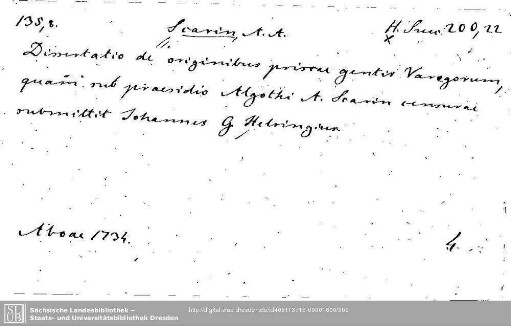 135,8. Scarin, A. A. H. Suec. 200,22
Dissertatio de originibus priscae gentis Varegorum,
quam sub praesidio Algothi A. Scarin censurae
submittit Johannes G. Helsingius
Aboae 1734. 4.
Sächsische Landesbibliothek –
Staats- und Universitätsbibliothek Dresden